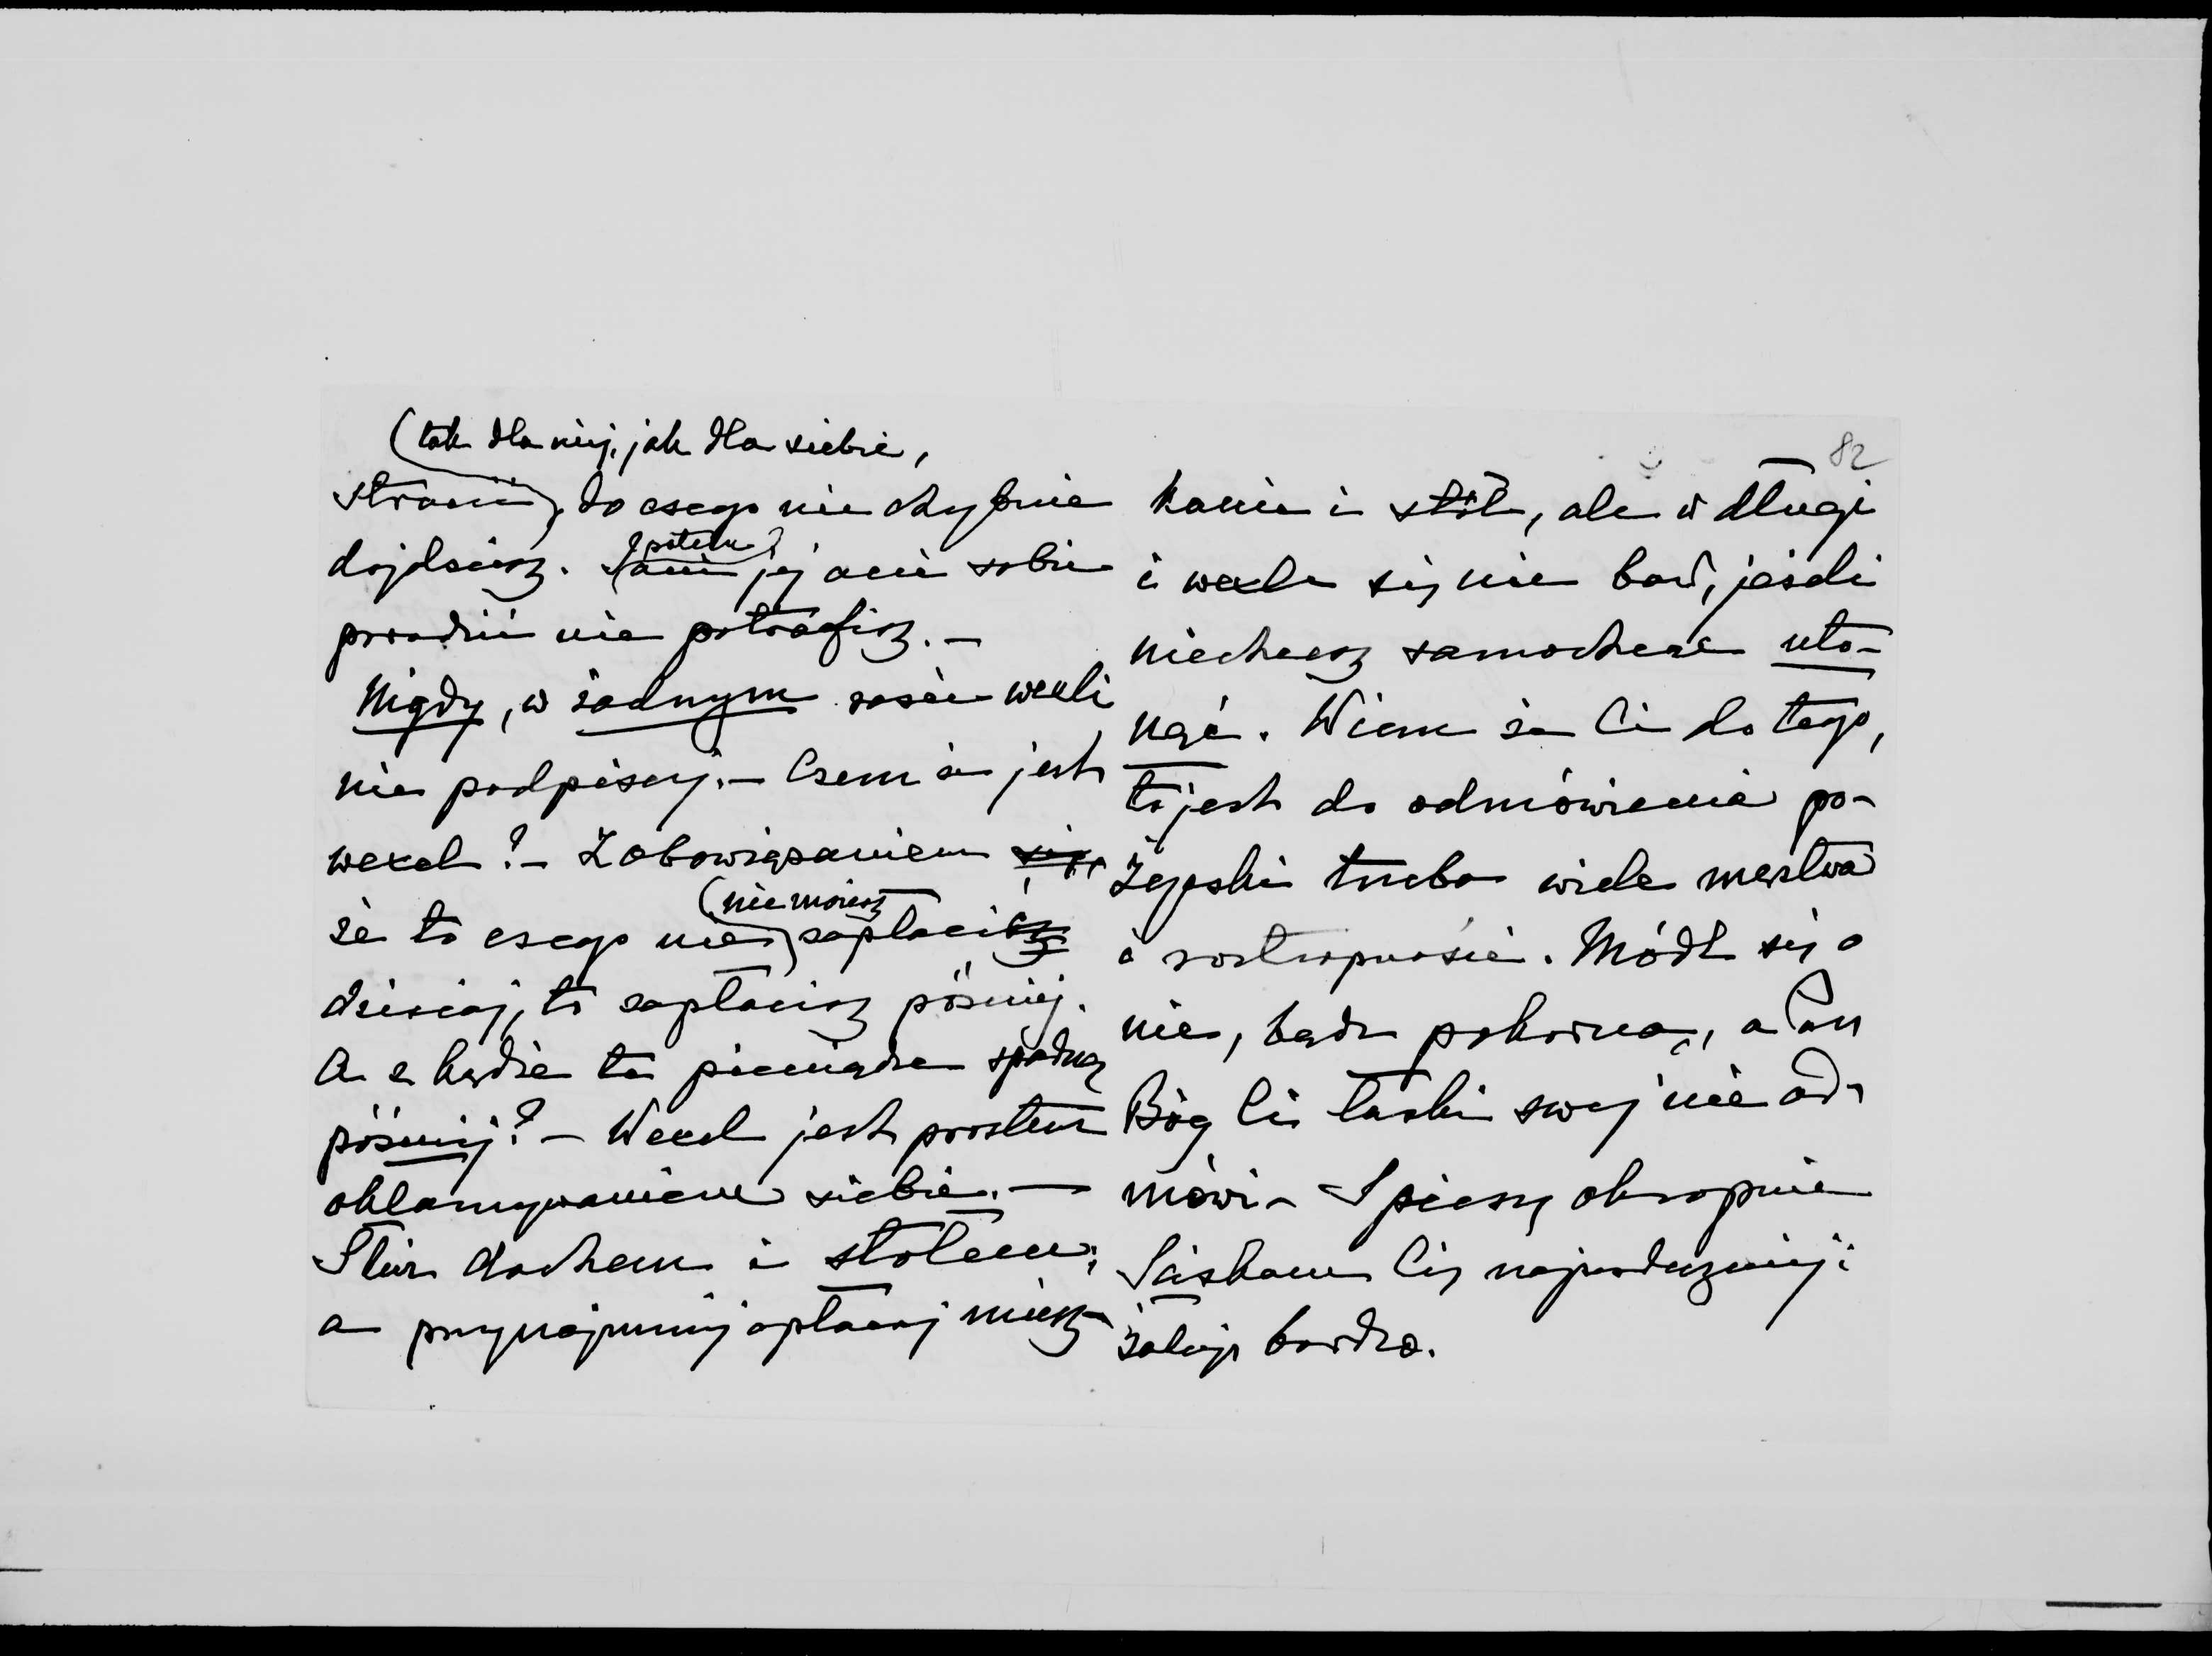 (tak dla niej, jak dla siebie,
stracić, do czego nie chybnie
dojdziesz. potem ani jej ani sobie
poradzić nie potrafisz. –
Nigdy, w żadnym razie wexli
nie podpisuj. – Czem że jest
wexel? – Zobowiązaniem się
że to czego nie (nie możesz zapłacić
dzisiaj, to zapłacisz później.
A z kądże te pieniądze spadną
później? – Wexel jest prostem
okłamywaniem siebie. –
Służ dachem i stołem,
a przynajmniej opłacaj miesz-
82
kanie i stół, ale w długi
i wexle się nie baw, jeśli
niechcesz samochcąc uto-
nąć. Wiem że Ci do tego,
to jest do odmówienia po-
życzki trzeba wiele męstwa
i roztropności. Módl się o
nie, bądź pokorną, a Pan
Bóg Ci łaski swej nie od-
mówi – Spieszę okropnie
Ściskam Cię najserdeczniej i
żałuję bardzo.